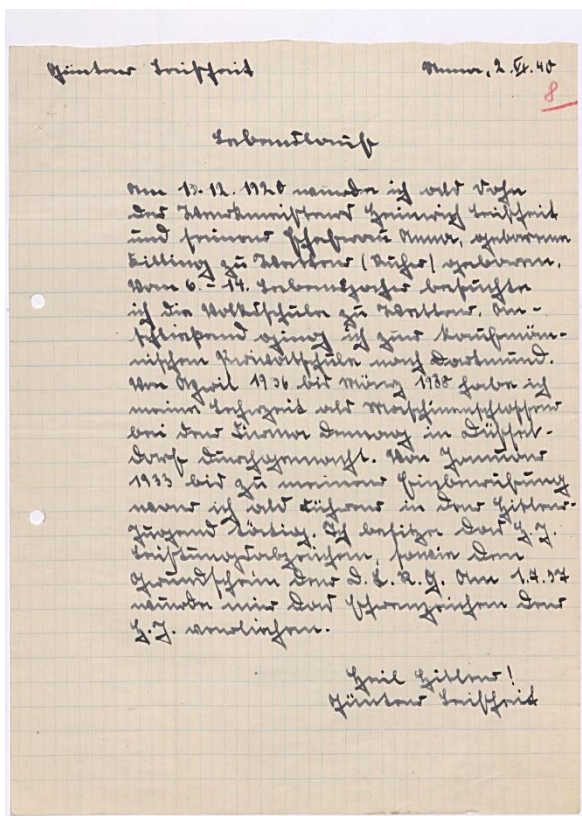 Günter Leifheit Unna, 2. VI. 40
8
Lebenslauf
Am 13.12.1920 wurde ich als Sohn
des Werkmeisters Heinrich Leifheit
und seiner Ehefrau Anna, geborene
Killing zu Wetter (Ruhr) geboren.
Vom 6. – 14. Lebensjahre besuchte
ich die Volksschule zu Wetter. An-
schließend ging ich zur kaufmän-
nischen Privatschule nach Dortmund.
Von April 1936 bis März 1938 habe ich
meine Lehrzeit als Maschinenschlosser
bei der Firma Demag in Düssel-
dorf durchgemacht. Von Januar
1933 bis zu meiner Einberufung
war ich als Führer in der Hitler-
Jugend tätig. Ich besitze das H.J.
Leistungsabzeichen, sowie den
Grundschein der D.L.R.G. Am 1.4.37
wurde mir das Ehrenzeichen der
H.J. verliehen.
Heil Hitler!
Günter Leifheit